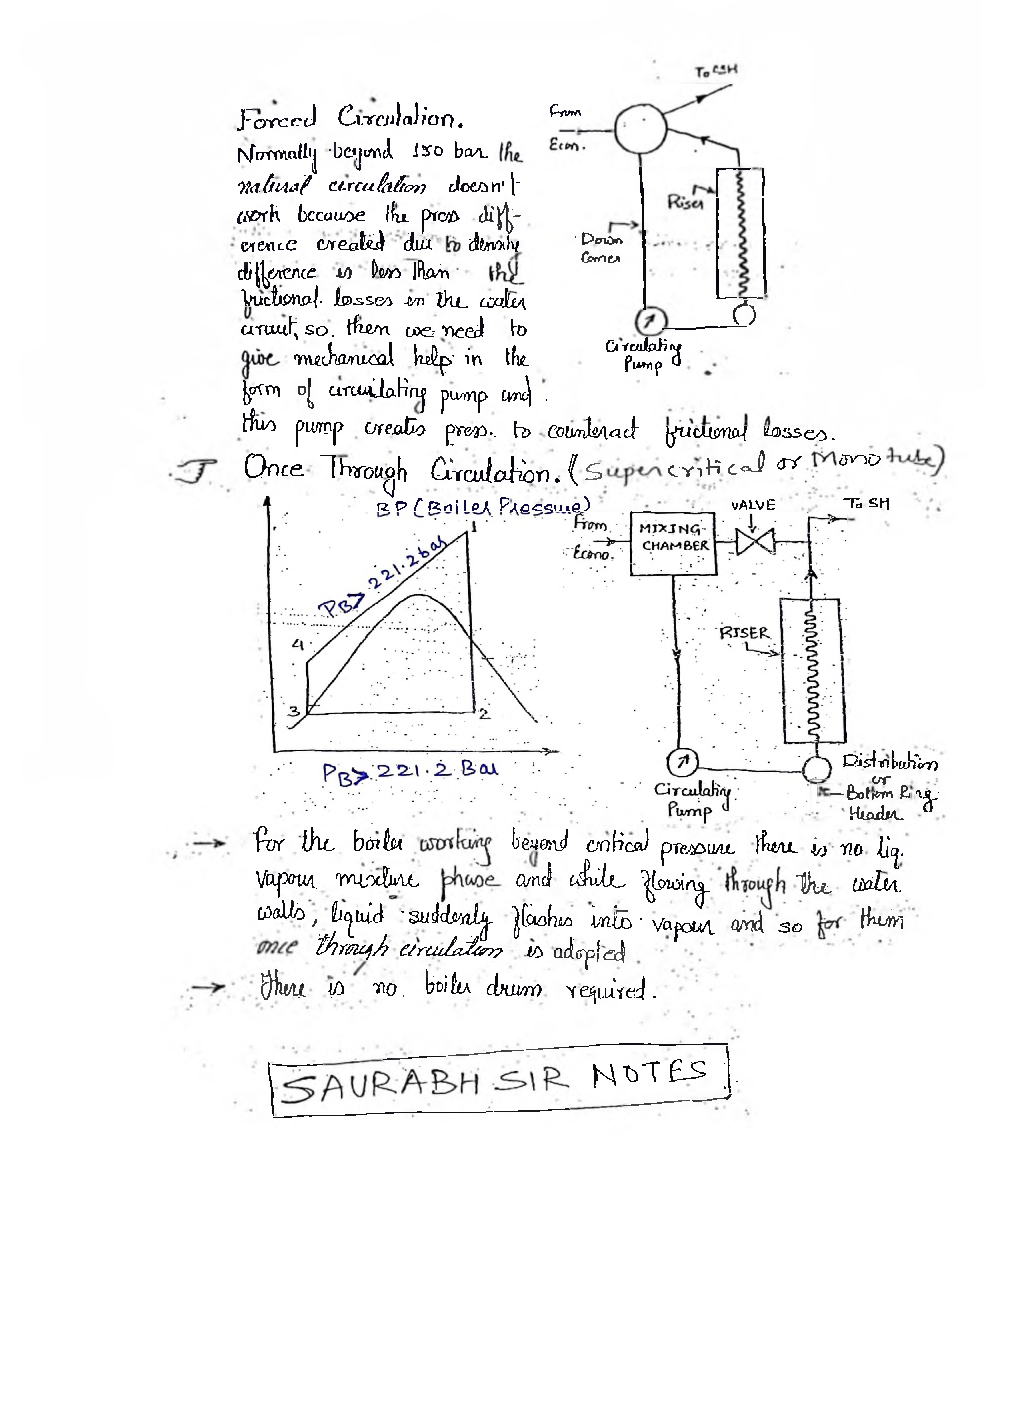 To SH
Forced Circulation.
From
Econ.
Normally beyond 150 bar the
natural circulation doesn't
work because the press diff-
erence created due to density
difference is less than the
frictional losses in the water
circuit, so then we need to
give mechanical help in the
form of circulating pump and
this pump creates press. to counteract frictional losses.
Riser
Down
Comer
Circulating
Pump
Once Through Circulation. (Supercritical or Monotube)
BP (Boiler Pressure)
PB > 221.2 bar
1
4
3
2
PB > 221.2 Bar
From
Econo.
MIXING
CHAMBER
VALVE
To SH
RISER
Circulating
Pump
Distribution
or
Bottom Ring
Header
→ For the boiler working beyond critical pressure there is no liq.
vapour mixture phase and while flowing through the water
walls, liquid suddenly flashes into vapour and so for them
once through circulation is adopted.
→ There is no boiler drum required.
SAURABH SIR NOTES